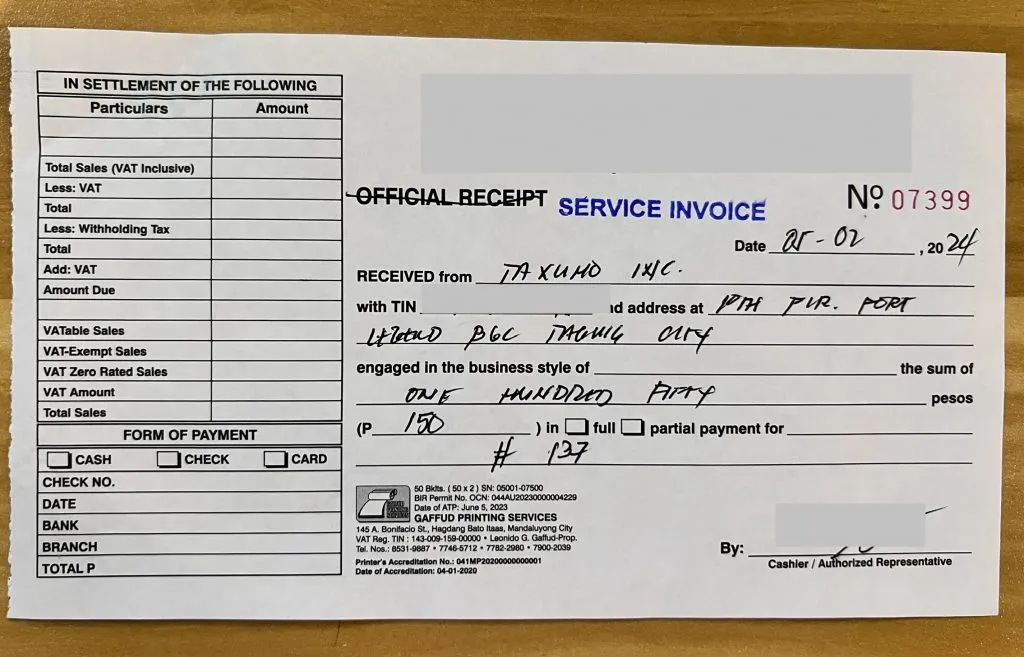 IN SETTLEMENT OF THE FOLLOWING
Particulars Amount
Total Sales (VAT Inclusive)
Less: VAT
Total
Less: Withholding Tax
Total
Add: VAT
Amount Due
VATable Sales
VAT-Exempt Sales
VAT Zero Rated Sales
VAT Amount
Total Sales
FORM OF PAYMENT
CASH CHECK CARD
CHECK NO.
DATE
BANK
BRANCH
TOTAL P
OFFICIAL RECEIPT SERVICE INVOICE
Nº 07399
Date 05-02, 2024
RECEIVED from TAXUMO INC.
with TIN address at PTH FLR. FORT
LEGEND BGC TAGUIG CITY
engaged in the business style of the sum of
ONE HUNDRED FIFTY pesos
(P 150 ) in full partial payment for
# 137
50 Bklts. (50 x 2) SN: 05001-07500
BIR Permit No. OCN: 044AU20230000004229
Date of ATP: June 5, 2023
GAFFUD PRINTING SERVICES
145 A. Bonifacio St., Hagdang Bato Itaas, Mandaluyong City
VAT Reg. TIN : 143-009-159-00000 • Leonido G. Gaffud-Prop.
Tel. Nos.: 8531-9887 • 7746-5712 • 7782-2980 • 7900-2039
Printer's Accreditation No.: 041MP20200000000001
Date of Accreditation: 04-01-2020
By:
Cashier / Authorized Representative